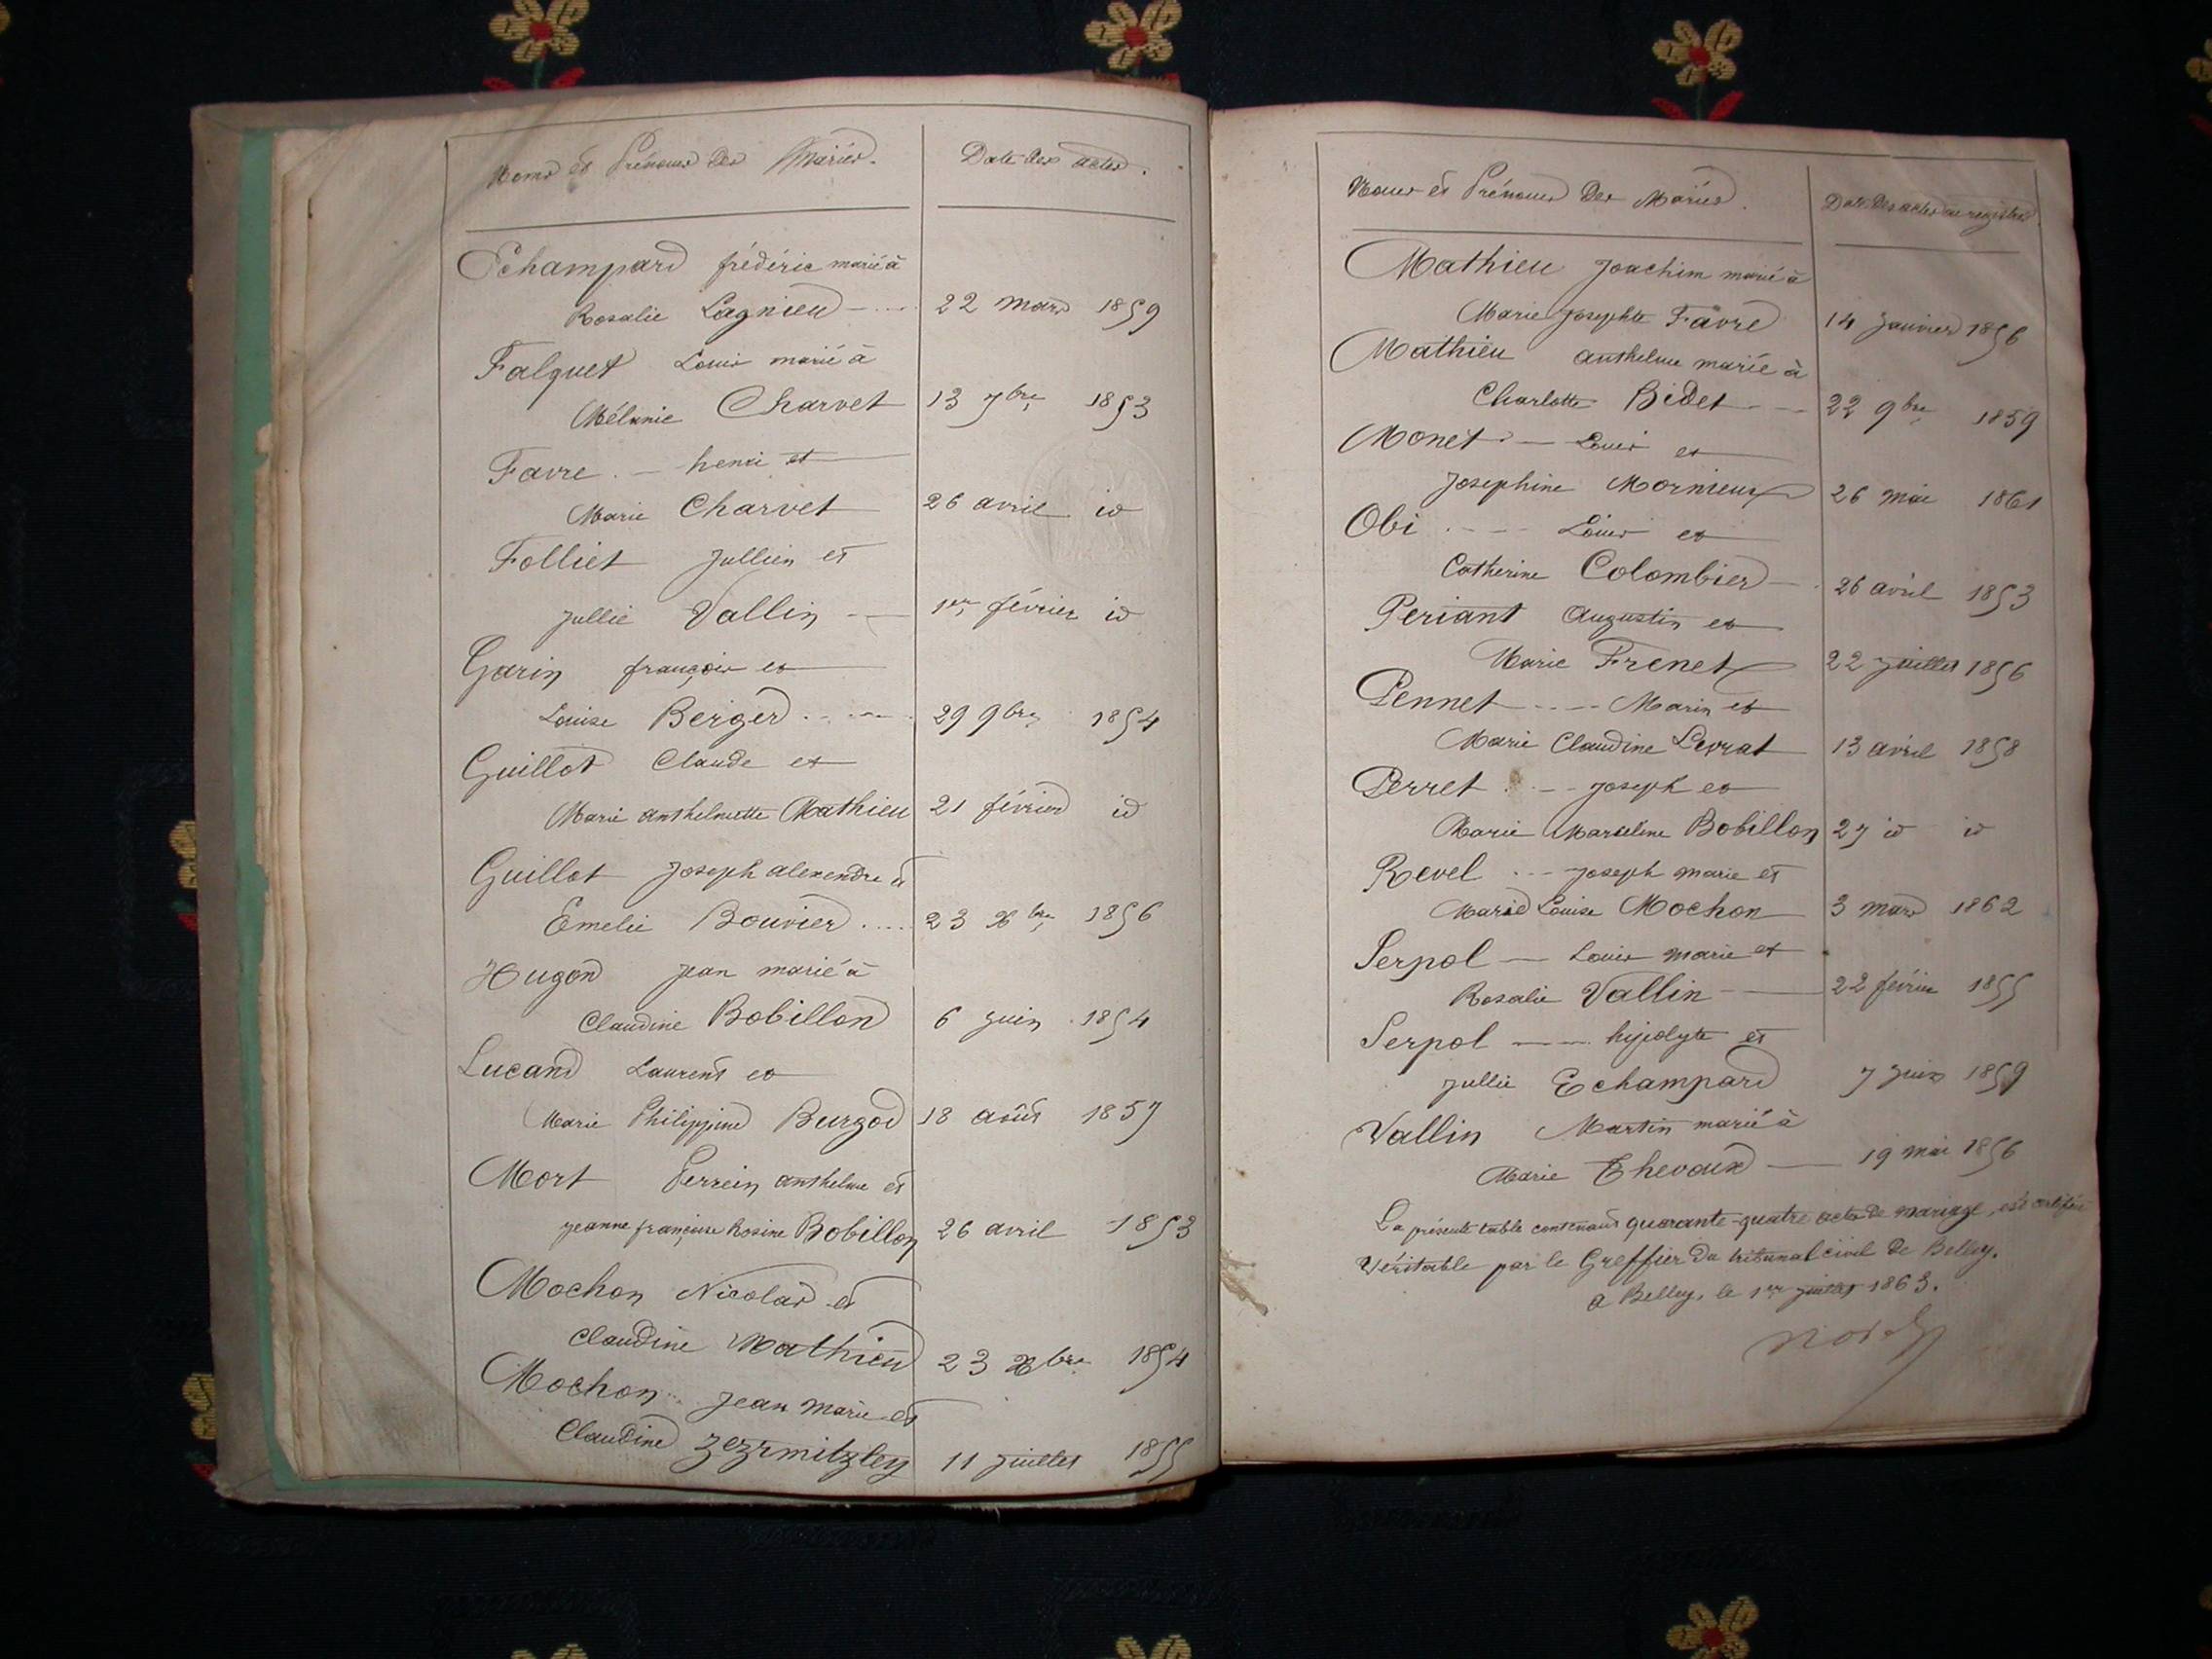 Noms et Prénoms des Mariés.
Date des actes.
Echampard frédéric marié à
Rosalie Lagnieu 22 mars 1859
Falquet Louis marié à
Mélanie Charvet 13 7bre 1853
Favre. — henri et
Marie Charvet 26 avril id
Folliet Jullien et
Jullie Vallin 1er février id
Garin françois et
Louise Berger 29 9bre 1854
Guillot Claude et
Marie anthelmette Mathieu 21 février id
Guillot Joseph alexendre et
Emelie Bouvier 23 Xbre 1856
Hugon Jean marié à
Claudine Bobillon 6 juin 1854
Lucand Laurent et
Marie Philippine Burgod 18 août 1857
Mort Perrein anthelme et
jeanne françoise Rosine Bobillon 26 avril 1853
Mochon Nicolas et
Claudine Mathieu 23 Xbre 1854
Mochon Jean marie et
Claudine 11 juillet 1855
Noms et Prénoms des Mariés.
Date des actes au registre
Mathieu Joachim marié à
Marie Josephte Favre 14 Janvier 1856
Mathieu anthelme marié à
Charlotte Bidet 22 9bre 1859
Monet — Louis et
Josephine Mornieux 26 mai 1861
Obi Louis et
Catherine Colombier 26 avril 1853
Periant Augustin et
Marie Frenet 22 juillet 1856
Pennet Marin et
Marie Claudine Levrat 13 avril 1858
Perret Joseph et
Marie Marceline Bobillon 27 id id
Revel Joseph marie et
Marie Louise Mochon 3 mars 1862
Serpol — Louis marie et
Rosalie Vallin 22 février 1855
Serpol — hipolyte et
Jullie Echampard 7 juin 1859
Vallin Martin marié à
Marie Thevoux 19 mai 1856
La présente table contenant quarante-quatre actes de mariage, est certifiée
Véritable par le Greffier du tribunal civil de Belley.
A Belley, le 1er juillet 1863.